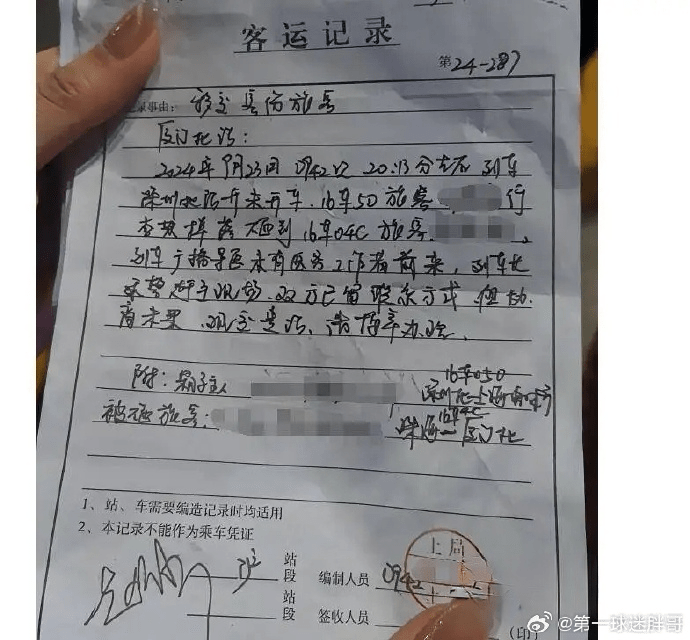 客运记录
第24-287
录事由: 移交 旅客
厦门北站:
2024年9月23日 D942次 20:13分左右 列车
深圳北站开未开车. 16车5D旅客 行
李架掉落 砸到 16车04C 旅客
列车广播寻医未有医务工作者前来, 列车长
乘警 赶到现场. 双方已留联系方式 但协
商未果 现交贵站、请按章办理.
附: 箱子主人 16车05D
深圳北-上海南
被砸旅客: 16车4C
珠海-厦门北
1、站、车需要编造记录时均适用
2、本记录不能作为乘车凭证
站
段 编制人员 D942
上局
站
段 签收人员 (印)
@第一球迷胖哥